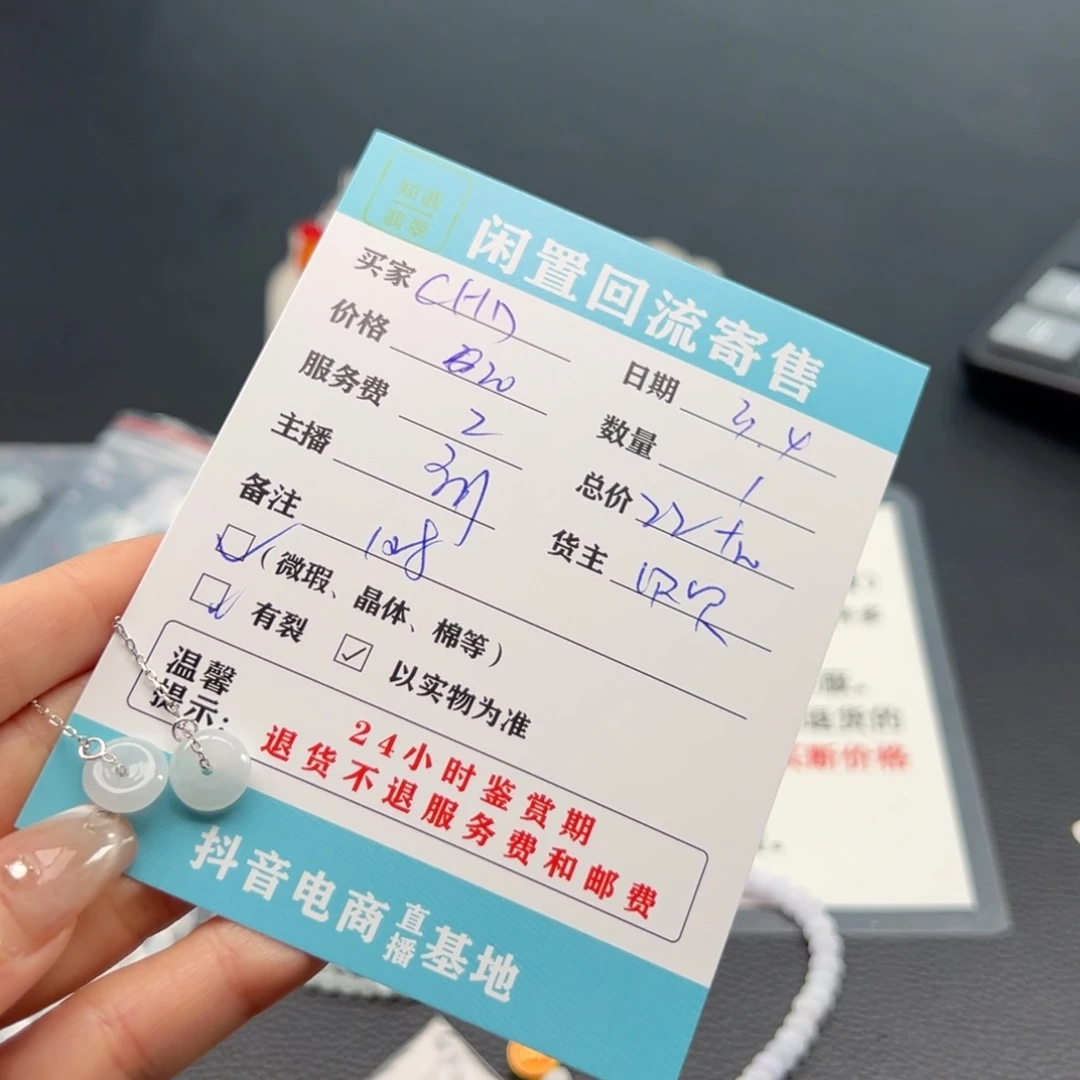 知翡
翡翠
闲置回流寄售
买家 CHD 日期 3.4
价格 数量 1
服务费 2 总价
主播 货主
备注 108
(微瑕、晶体、棉等)
有裂 ☑ 以实物为准
温馨
提示:
24小时鉴赏期
退货不退服务费和邮费
抖音电商直播基地
断价格